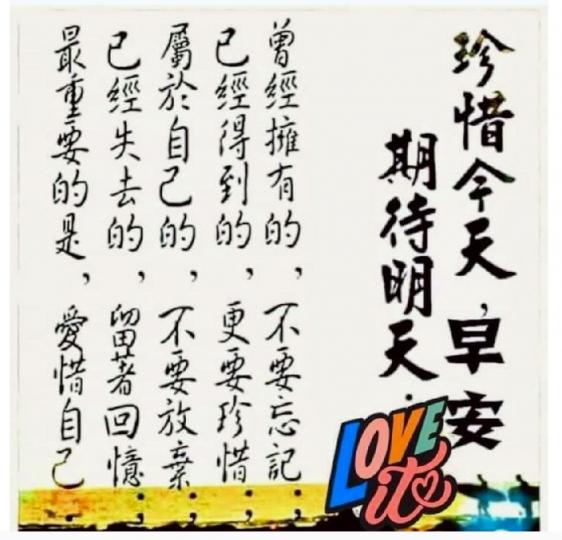 珍惜今天，早安
期待明天．
曾經擁有的，不要忘記；
已經得到的，更要珍惜；
屬於自己的，不要放棄；
已經失去的，留著回憶；
最重要的是，愛惜自己．
LOVE
it